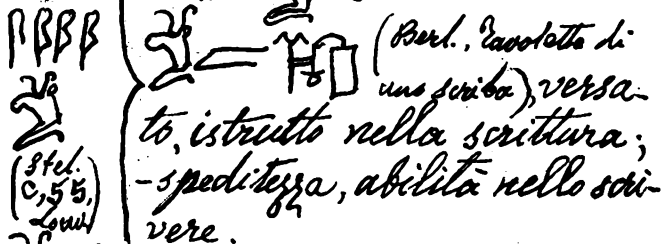 (Berl., Tavoletta di
uno scriba), versa-
to, istrutto nella scrittura;
-speditezza, abilità nello scri-
vere.
(Stel.
C, 55,
Louv.)